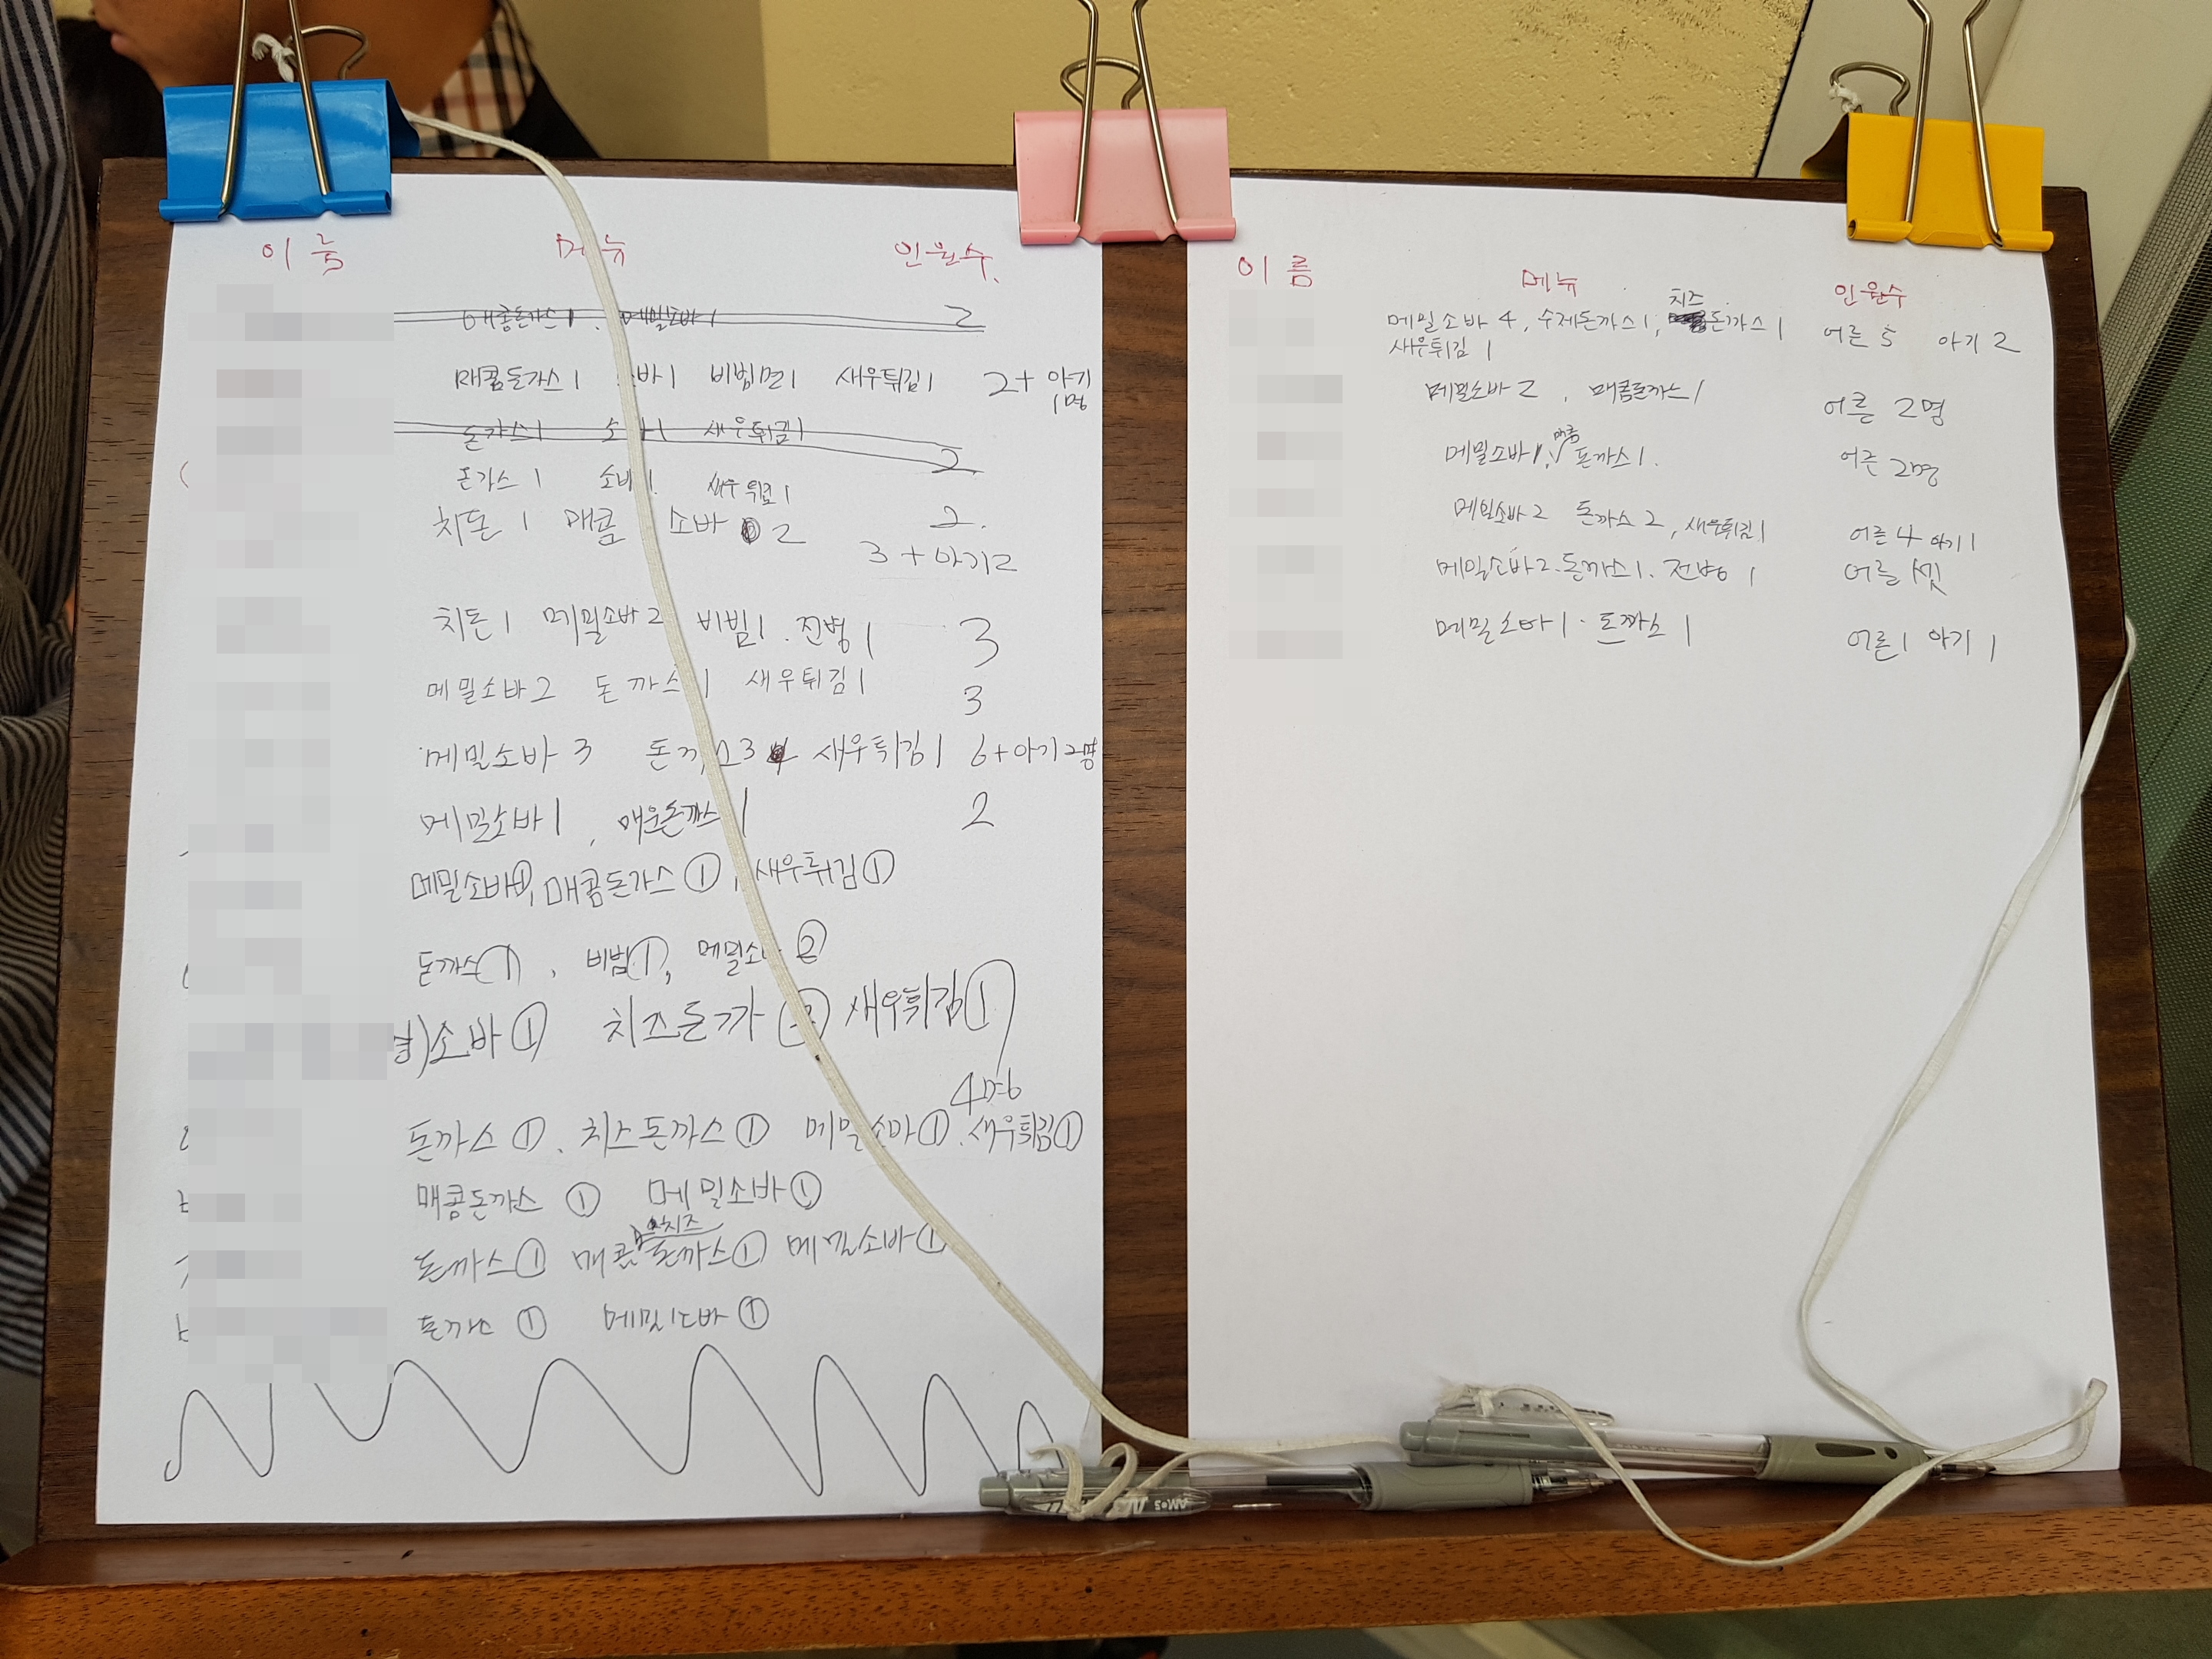 이름 메뉴 인원수.
매콤돈가스 1 . 메밀소바 1 2
매콤돈가스 1 바 1 비빔면 1 새우튀김 1 2+ 아기
1명
돈까스 1 소바 1 새우튀김 1
2
돈가스 1 소바 1 새우튀김 1
치돈 1 매콤 소바 2 2.
3 + 아기2
치돈 1 메밀소바 2 비빔 1 . 전병 1 3
메밀소바 2 돈까스 1 새우튀김 1 3
메밀소바 3 돈까스 3 새우튀김 1 6+아기2명
메밀소바 1 , 매운돈까스 1 2
메밀소바①, 매콤돈가스 ①, 새우튀김 ①
돈까스 ①, 비빔 ①, 메밀소바 ②
소바 ① 치즈돈까 새우튀김 ①
4명
돈까스 ①. 치즈돈까스 ① 메밀소바 ①. 새우튀김 ①
매콤돈까스 ① 메밀소바 ①
치즈
돈까스 ① 매콤 돈까스 ① 메밀소바 ①
돈까스 ① 메밀소바 ①
이름 메뉴 인원수
치즈
메밀소바 4, 수제돈까스 1, 돈까스 1 어른 5 아기 2
새우튀김 1
메밀소바 2 , 매콤돈까스 1 어른 2명
매콤
메밀소바 1, 돈까스 1. 어른 2명
메밀소바 2 돈까스 2, 새우튀김 1 어른 4 아기 1
메밀소바 2. 돈까스 1. 전병 1 어른 셋
메밀소바 1 . 돈까스 1 어른 1 아기 1
AMOS